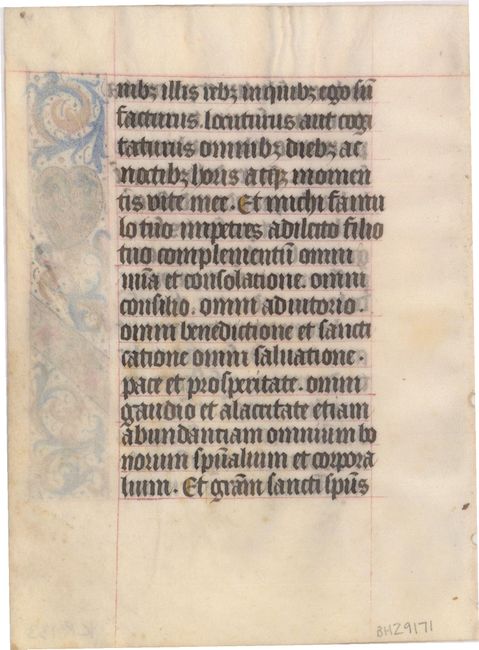 nibꝫ illis rebꝫ in quibꝫ ego sū
facturus. locuturus aut cogi
taturus omnibꝫ diebꝫ ac
noctibꝫ horis atqꝫ momen
tis vite mee. Et michi famu
lo tuo impetres a dilcto filio
tuo complementū omni
mīa et consolatione. omni
consilio. omni adiutorio.
omni benedictione et sancti
catione omni saluatione.
pace et prosperitate. omni
gaudio et alacritate etiam
abundantiam omnium bo
norum spūalium et corpora
lium. Et grām sancti spūs
BH29171